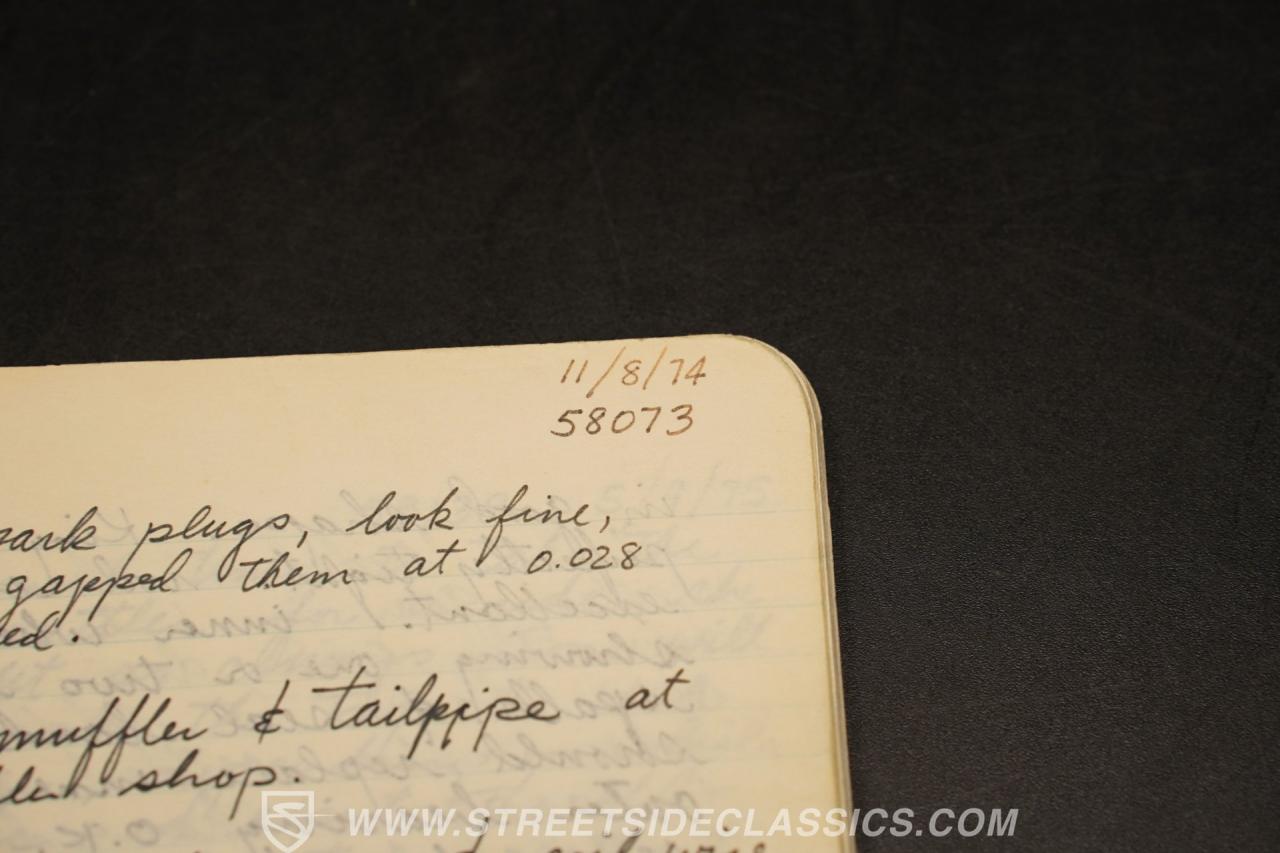 11/8/74
58073
park plugs, look fine,
gapped them at 0.028
ed.
muffler & tailpipe at
ler shop.
WWW.STREETSIDECLASSICS.COM